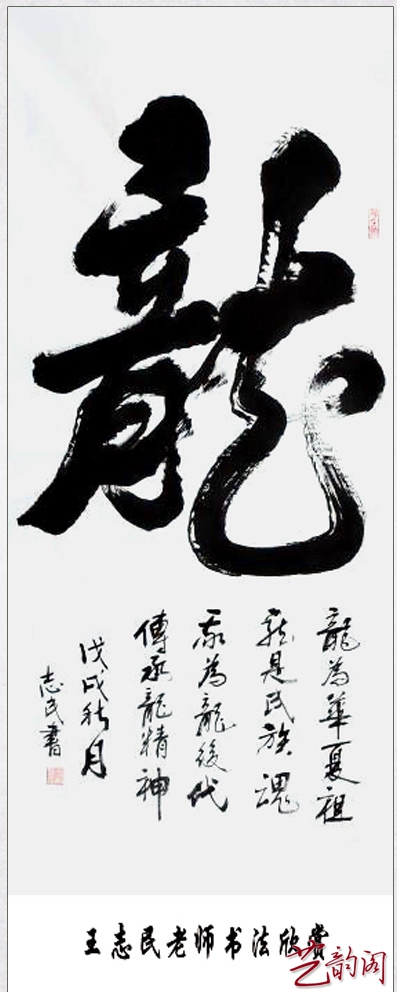 龍
龍為華夏祖
龍是民族魂
我為龍後代
傳承龍精神
戊戌秋月
志民書
王志民老师书法欣赏
艺韵阁